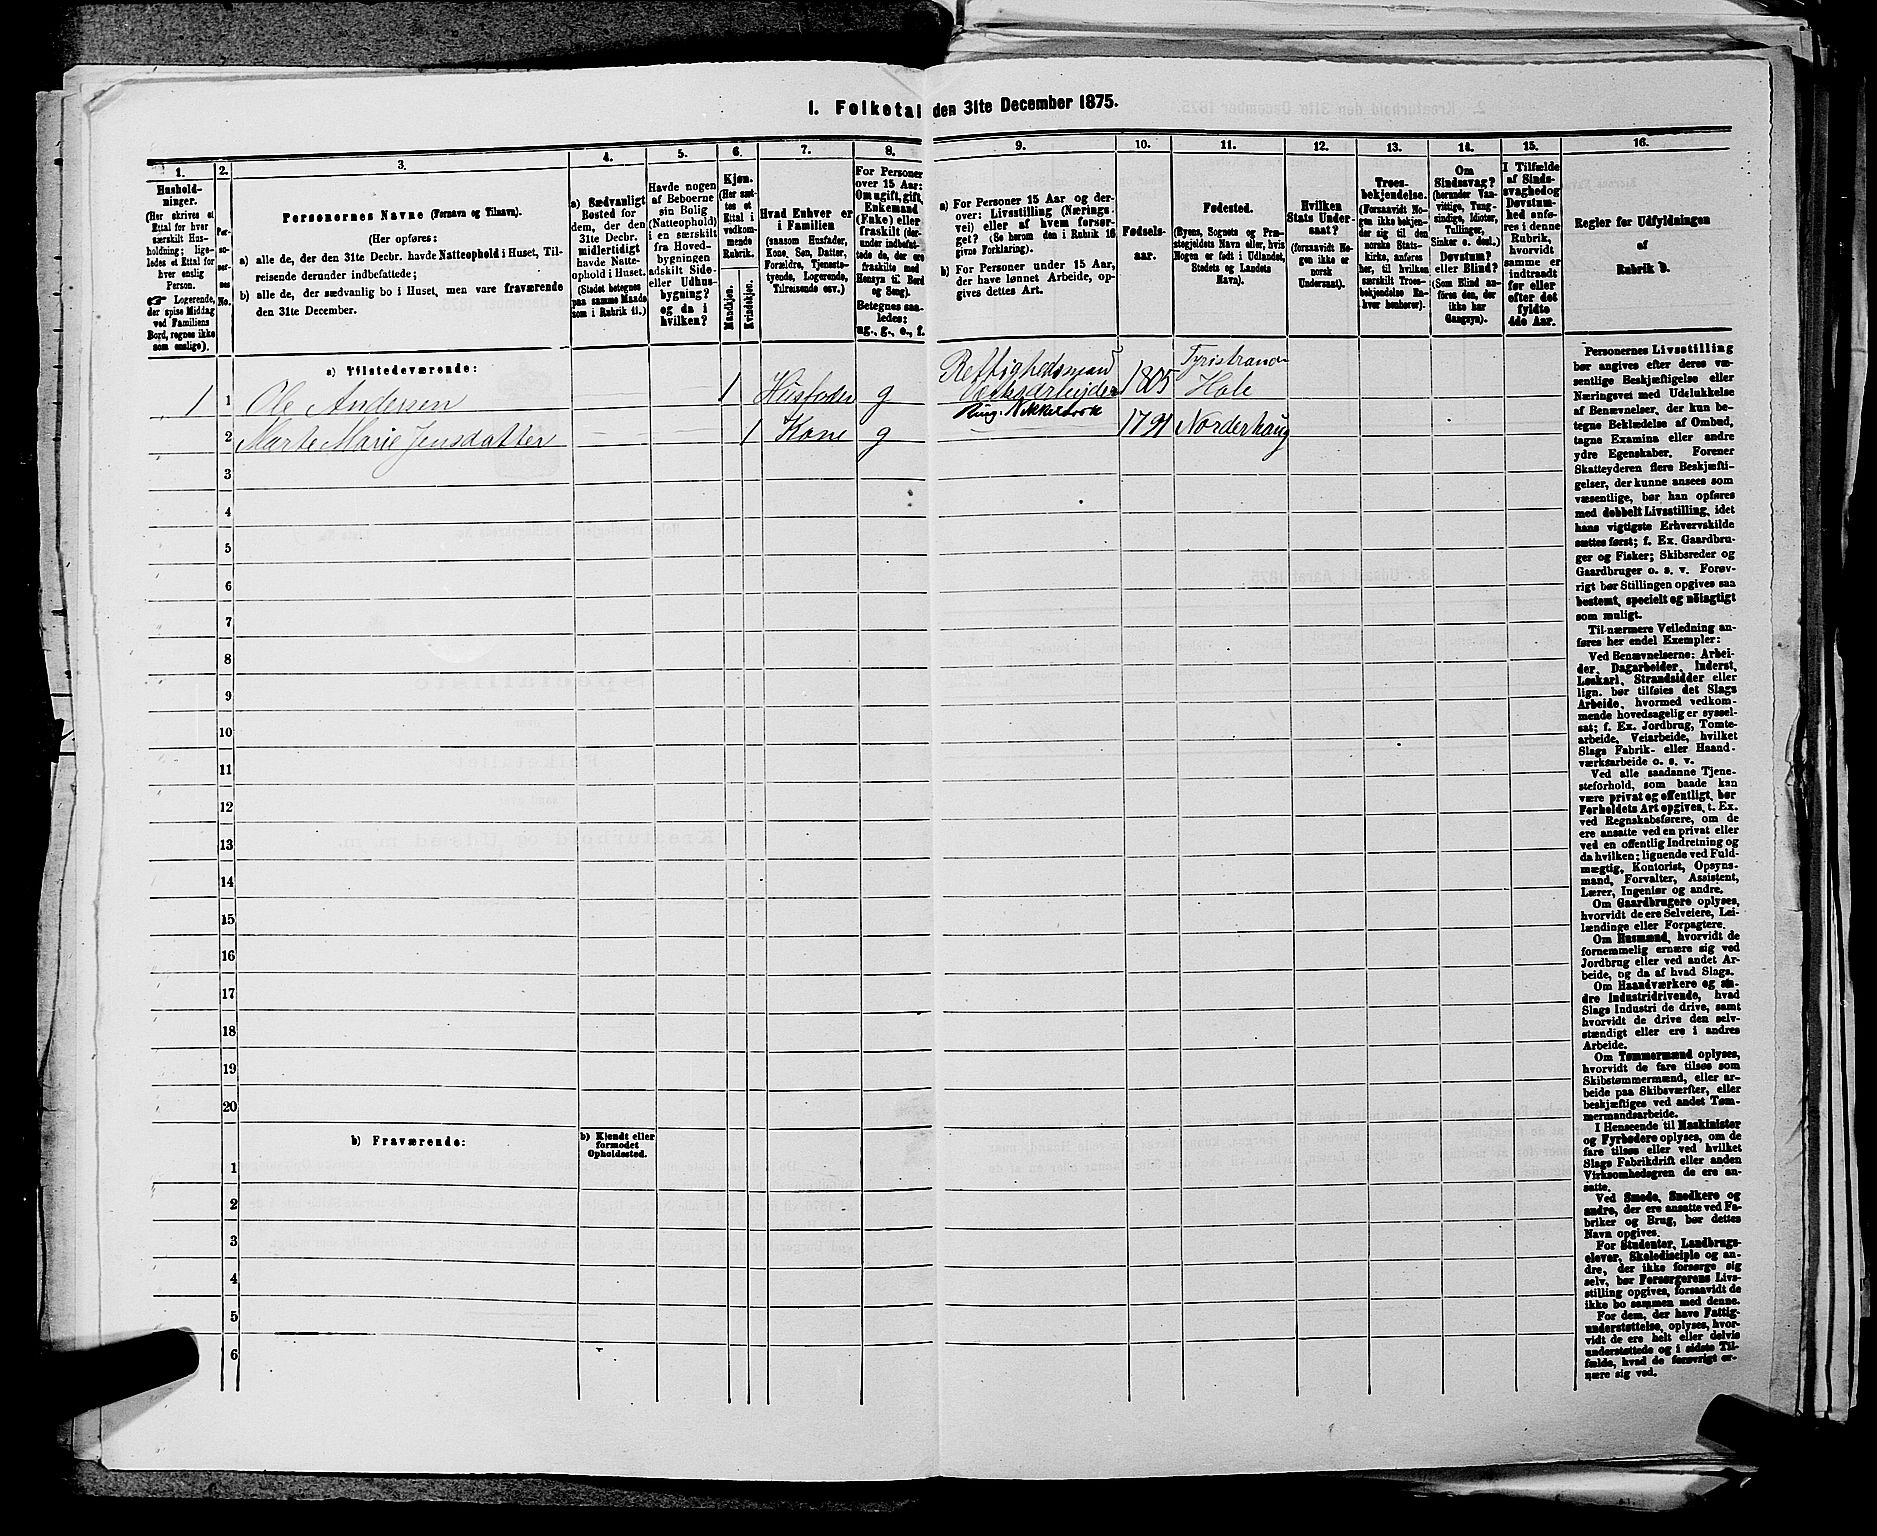 1. Folketal den 31te December 1875.
1.
2.
3.
4.
5.
6.
7.
8.
9.
10.
11.
12.
13.
14.
15.
16.
Hushold-
ninger.
(Her skrives et
Ettal for hver
særskilt Hus-
holdning; lige-
ledes et Ettal for
hver enslig
Person.
☞ Logerende,
der spise Middag
ved Familiens
Bord, regnes ikke
som enslige).
Per-
so-
ner-
nes
No.
Personernes Navne (Fornavn og Tilnavn).
(Her opføres:
a) alle de, der den 31te Decbr. havde Natteophold i Huset, Til-
reisende derunder indbefattede;
b) alle de, der sædvanlig bo i Huset, men vare fraværende
den 31te December.
a) Sædvanligt
Bosted for
dem, der den
31te Decbr.
midlertidigt
havde Natte-
ophold i Huset.
(Stedet betegnes
paa samme Maade
som i Rubrik 11.)
Havde nogen
af Beboerne
sin Bolig
(Natteophold)
i en særskilt
fra Hoved-
bygningen
adskilt Side-
eller Udhus-
bygning?
og da i
hvilken?
Kjøn.
(Her sæt-
tes et
Ettal i
vedkom-
mende
Rubrik.
Mandkjøn.
Kvindekjøn.
Hvad Enhver er
i Familien
(saasom Husfader,
Kone, Søn, Datter,
Forældre, Tjenests-
tyende, Logerende,
Tilreisende osv.)
For Personer
over 15 Aar:
Om ugift, gift,
Enkemand
(Enke) eller
fraskilt (der-
under indbefat-
tede de, der ere
fraskilte med
Hensyn til Bord
og Seng).
Betegnes saa-
ledes:
ug., g., e., f.
a) For Personer 15 Aar og der-
over: Livsstilling (Nærings-
vei) eller af hvem forsør-
get? (Se herom den i Rubrik 16
givne Forklaring).
b) For Personer under 15 Aar,
der have lønnet Arbeide, op-
gives dettes Art.
Fødsels-
aar.
Fødested.
(Byens, Sognets og Præ-
stegjeldets Navn eller, hvis
Nogen er født i Udlandet,
Stedets og Landets
Navn).
Hvilken
Stats Under-
saat?
(forsaavidt No-
gen ikke er
norsk
Undersaat).
Troes-
bekjendelse.
(Forsaavidt No-
gen ikke bekjen-
der sig til den
norske Stats-
kirke, anføres
her, til hvilken
særskilt Troes-
bekjendelse En-
hver henhører).
Om
Sindssvag?
(herunder Van-
vittige, Tung-
sindige, Idioter,
Tullinger,
Sinker o. desl.)
Døvstum?
eller Blind?
(Som Blind an-
føres den, der
ikke har
Gangsyn).
I Tilfælde
af Sinds-
svaghed og
Døvstum-
hed anfø-
res i denne
Rubrik,
hvorvidt
samme er
indtraadt
før eller
efter det
fyldte
4de Aar.
Regler for Udfyldningen
af
Rubrik 9.
a) Tilstedeværende:
1 1 Ole Andersen 1 Husfader g Rettighedsmand 1805 Tyristrand
Værksarbeider Hole
Ring. Nikkelværk
2 Marte Marie Jensdatter 1 Kone g 1791 Norderhaug
3
4
5
6
7
8
9
10
11
12
13
14
15
16
17
18
19
20
b) Fraværende:
b) Kjendt eller
formodet
Opholdssted.
1
2
3
4
5
6
Personernes Livsstilling
bør angives efter deres væ-
sentlige Beskjæftigelse eller
Næringsvei med Udelukkelse
af Benævnelser, der kun be-
tegne Beklædelse af Ombud,
tagne Examina eller andre
ydre Egenskaber. Forener
Skatteyderen flere Beskjæfti-
gelser, der kunne ansees som
væsentlige, bør han opføres
med dobbelt Livsstilling, idet
hans vigtigste Erhvervskilde
sættes først; f. Ex. Gaardbru-
ger og Fisker; Skibsreder og
Gaardbruger o. s. v. Forøv-
rigt bør Stillingen opgives saa
bestemt, specielt og nøiagtigt
som muligt.
Til nærmere Veiledning an-
føres her endel Exempler:
Ved Benævnelserne: Arbei-
der, Dagarbeider, Inderst,
Løskarl, Strandsidder eller
lign. bør tilføies det Slags
Arbeide, hvormed vedkom-
mende hovedsagelig er syssel-
sat; f. Ex. Jordbrug, Tomte-
arbeide, Veiarbeide, hvilket
Slags Fabrik- eller Haand-
værksarbeide o. s. v.
Ved alle saadanne Tjene-
steforhold, som baade kan
være privat og offentligt, bør
Forholdets Art opgives, t. Ex.
ved Regnskabsførere, om de
ere ansatte ved en privat eller
ved en offentlig Indretning og
da hvilken; lignende ved Fuld-
mægtig, Kontorist, Opsyns-
mand, Forvalter, Assistent,
Lærer, Ingeniør og andre.
Om Gaardbrugere oplyses,
hvorvidt de ere Selveiere, Lei-
lændinge eller Forpagtere.
Om Husmænd, hvorvidt de
fornemmelig ernære sig ved
Jordbrug eller ved andet Ar-
beide, og da af hvad Slags.
Om Haandværkere og an-
dre Industridrivende, hvad
Slags Industri de drive, samt
hvorvidt de drive den selv-
stændigt eller ere i andres
Arbeide.
Om Tømmermænd oplyses,
hvorvidt de fare tilsøs som
Skibstømmermænd, eller ar-
beide paa Skibsværfter, eller
beskjæftiges ved andet Tøm-
mermandsarbeide.
I Henseende til Maskinister
og Fyrbødere oplyses, om de
fare tilsøs eller ved hvilket
Slags Fabrikdrift eller anden
Virksomhedsgren de ere an-
satte.
Ved Smede, Snedkere og
andre, der ere ansatte ved Fa-
briker og Brug, bør dettes
Navn opgives.
For Studenter, Landbrugs-
elever, Skoledisciple og an-
dre, der ikke forsørge sig
selv, bør Forsørgerens Livs-
stilling opgives, forsaavidt de
ikke bo sammen med denne.
For dem, der have Fattig-
understøttelse, oplyses, hvor-
vidt de ere helt eller delvis
understøttede og i sidste Til-
fælde, hvad de forøvrigt er-
nære sig ved.